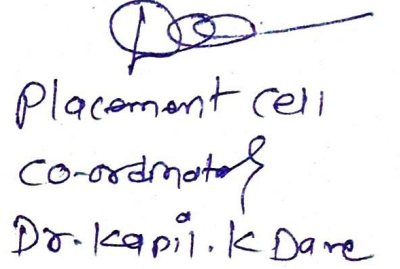 Placement Cell
Co-ordinator
Dr. Kapil. K Dare